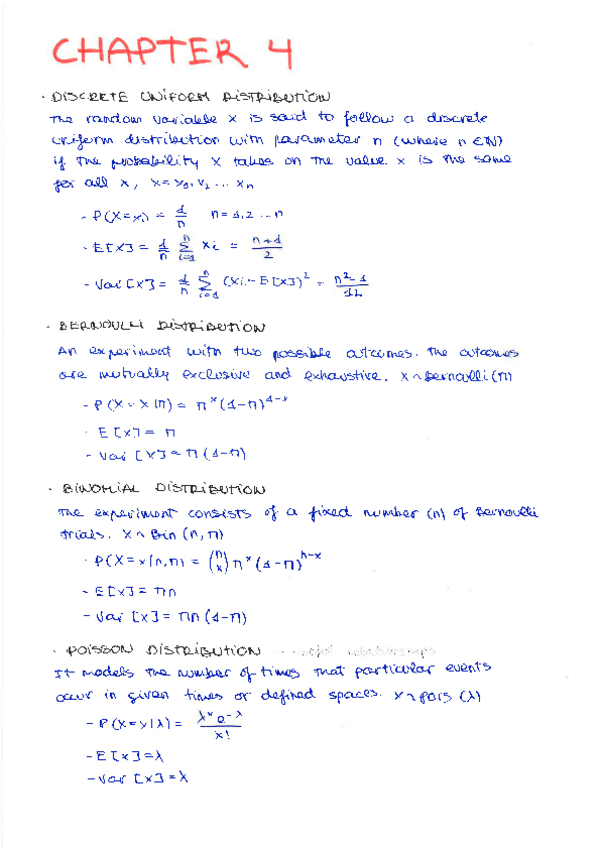 CHAPTER 4
· DISCRETE UNIFORM DISTRIBUTION
The random variable x is said to follow a discrete
uniform distribution with parameter n (where n ∈ N)
if the probability x takes on the value x is the same
for all x, x = x₁, x₂ ... xₙ
- P(X=xᵢ) = 1/n n = 1,2 ... n
- E[X] = 1/n Σⁿᵢ₌₁ xᵢ = (n+1)/2
- Var[X] = 1/n Σⁿᵢ₌₁ (xᵢ - E[X])² = (n²-1)/12
· BERNOULLI DISTRIBUTION
An experiment with two possible outcomes. The outcomes
are mutually exclusive and exhaustive. X ~ Bernoulli (π)
- P(X = x|π) = πˣ (1-π)¹⁻ˣ
· E[X] = π
- Var[X] = π(1-π)
· BINOMIAL DISTRIBUTION
The experiment consists of a fixed number (n) of Bernoulli
trials. X ~ Bin (n, π)
· P(X = x|n, π) = (n x) πˣ (1-π)ⁿ⁻ˣ
- E[X] = πn
- Var[X] = πn (1-π)
· POISSON DISTRIBUTION
It models the number of times that particular events
occur in given times or defined spaces. X ~ pois (λ)
- P(X=x|λ) = λˣ e⁻λ / x!
- E[X] = λ
- Var[X] = λ